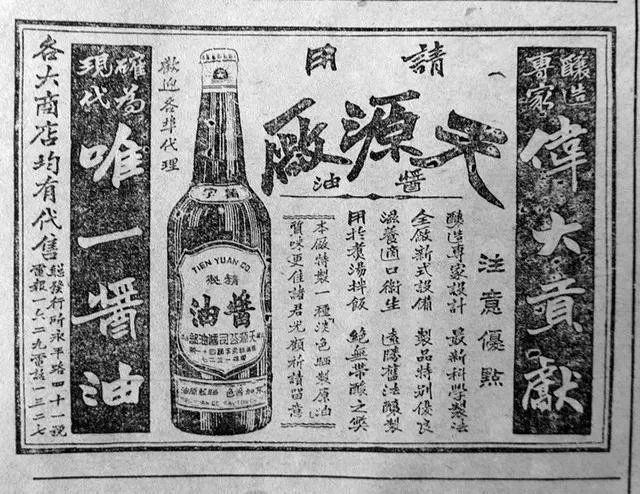 釀造專家
偉大貢獻
請用
天源廠
醬油
注意優點
釀造專家設計 最新科學製法
全廠新式設備 製品特别優良
滋養適口衛生 遠勝舊法釀製
用於煑湯拌飯 絶無帶酸之弊
本廠特製一種淡色晒製原油
質味更佳諸君光顧祈請留意
精字
TIEN YUAN CO.
精製
醬油
歡迎各埠代理
確為現代
唯一醬油
各大商店均有代售
總發行所永平路四十一號
電報一六二九電話一三二七